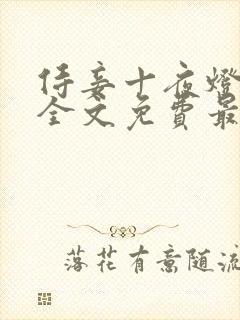 侍妾十夜燈
全文免費最
落花有意随流